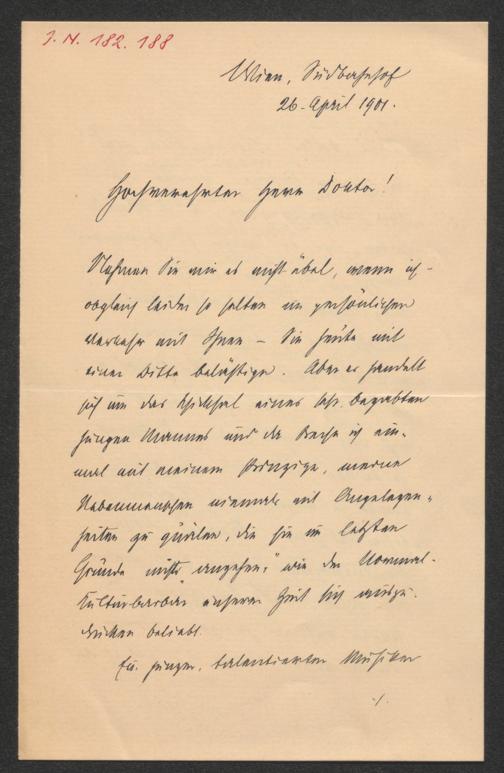 J. N. 182.188
Wien, Südbahnhof
26. April 1901.
Hochverehrter Herr Doktor!
Nehmen Sie mir es nicht übel, wenn ich -
obgleich leider so selten im persönlichen
Verkehr mit Ihnen – Sie heute mit
einer Bitte belästige. Aber es handelt
sich um das Schicksal eines sehr begabten
jungen Mannes und da breche ich ein-
mal mit meinem Prinzipe, meine
Nebenmenschen niemals mit Angelegen-
heiten zu quälen, die sie im letzten
Grunde nichts angehen," wie der Normal-
Kulturbarbar unserer Zeit sich auszu-
drücken beliebt.
Ein junger, talentierter Musiker
./.